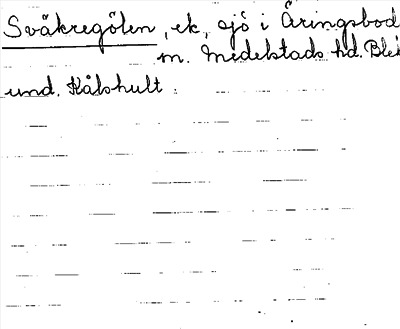 Svåkregölen, ek, sjö i Åringsbod
m. Medelstads hd. Blek
und. Kålshult.